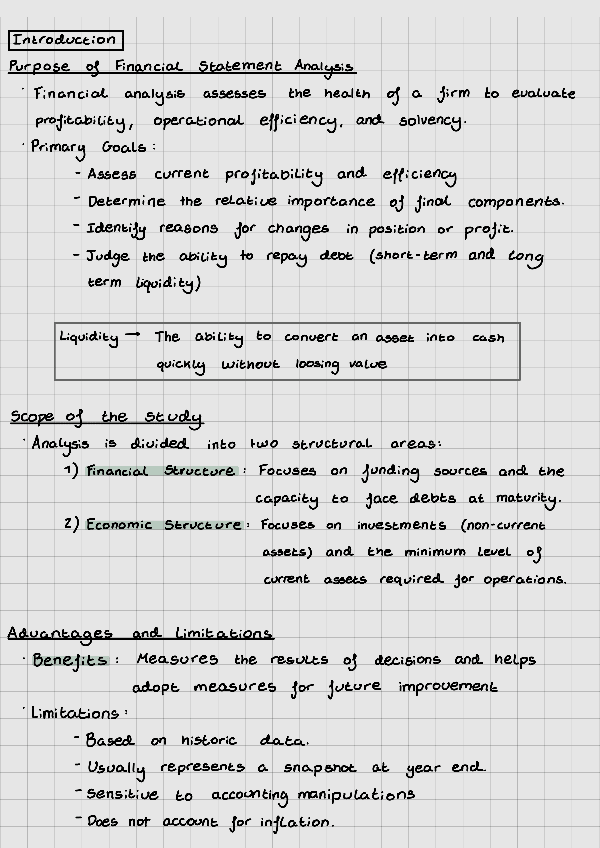 Introduction
Purpose of Financial Statement Analysis
· Financial analysis assesses the health of a firm to evaluate
profitability, operational efficiency, and solvency.
· Primary Goals:
- Assess current profitability and efficiency
- Determine the relative importance of final components.
- Identify reasons for changes in position or profit.
- Judge the ability to repay debt (short-term and long
term liquidity)
Liquidity → The ability to convert an asset into cash
quickly without loosing value
Scope of the study
· Analysis is divided into two structural areas:
1) Financial Structure: Focuses on funding sources and the
capacity to face debts at maturity.
2) Economic Structure: Focuses on investments (non-current
assets) and the minimum level of
current assets required for operations.
Advantages and Limitations
· Benefits: Measures the results of decisions and helps
adopt measures for future improvement
· Limitations:
- Based on historic data.
- Usually represents a snapshot at year end.
- Sensitive to accounting manipulations
- Does not account for inflation.